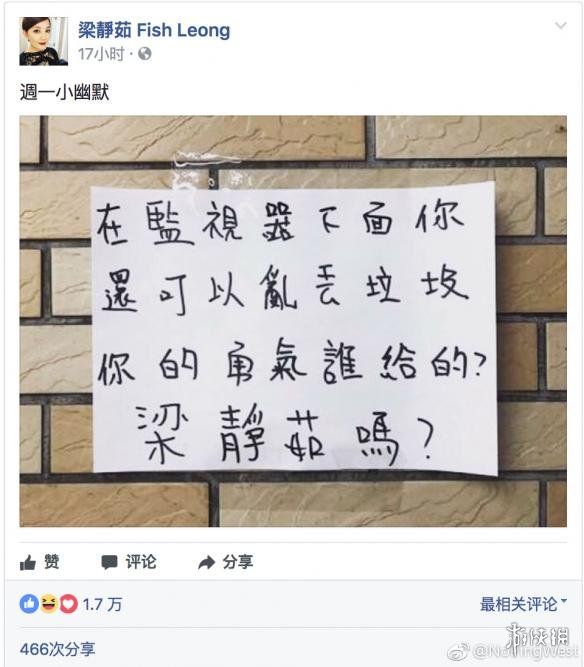 梁靜茹 Fish Leong
17小时
週一小幽默
在監視器下面你
還可以亂丟垃圾
你的勇氣誰給的?
梁靜茹嗎?
赞 评论 分享
1.7 万 最相关评论
466次分享
游侠网
@NothingWest